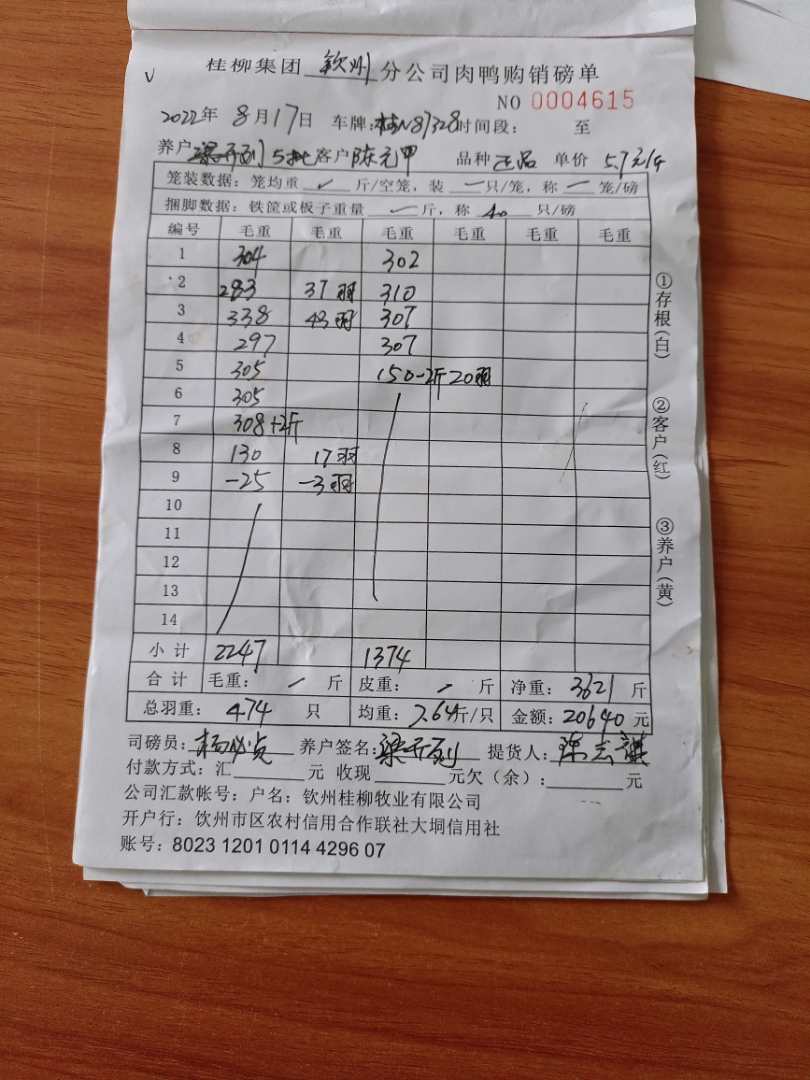 桂柳集团 钦州 分公司肉鸭购销磅单
NO 0004615
2022年 8月17日 车牌:桂N87328 时间段: 至
养户 梁开列 5批 客户 陈元甲 品种 正品 单价 5.7元/斤
笼装数据:笼均重 斤/空笼,装 一 只/笼,称 一 笼/磅
捆脚数据:铁筐或板子重量 斤,称 40 只/磅
编号 毛重 毛重 毛重 毛重 毛重 毛重
1 304 302
2 283 37羽 310
3 338 43羽 307
4 297 307
5 305 150-2斤 20羽
6 305
7 308+2斤
8 130 17羽
9 -25 -3羽
10
11
12
13
14
小计 2247 1374
合计 毛重: 斤 皮重: 斤 净重: 3621 斤
总羽重: 474 只 均重: 7.64斤/只 金额: 20640 元
司磅员: 养户签名:梁开列 提货人:
付款方式:汇 元 收现 元欠(余): 元
公司汇款帐号:户名:钦州桂柳牧业有限公司
开户行:钦州市区农村信用合作联社大垌信用社
账号:8023 1201 0114 4296 07
①存根(白)
②客户(红)
③养户(黄)